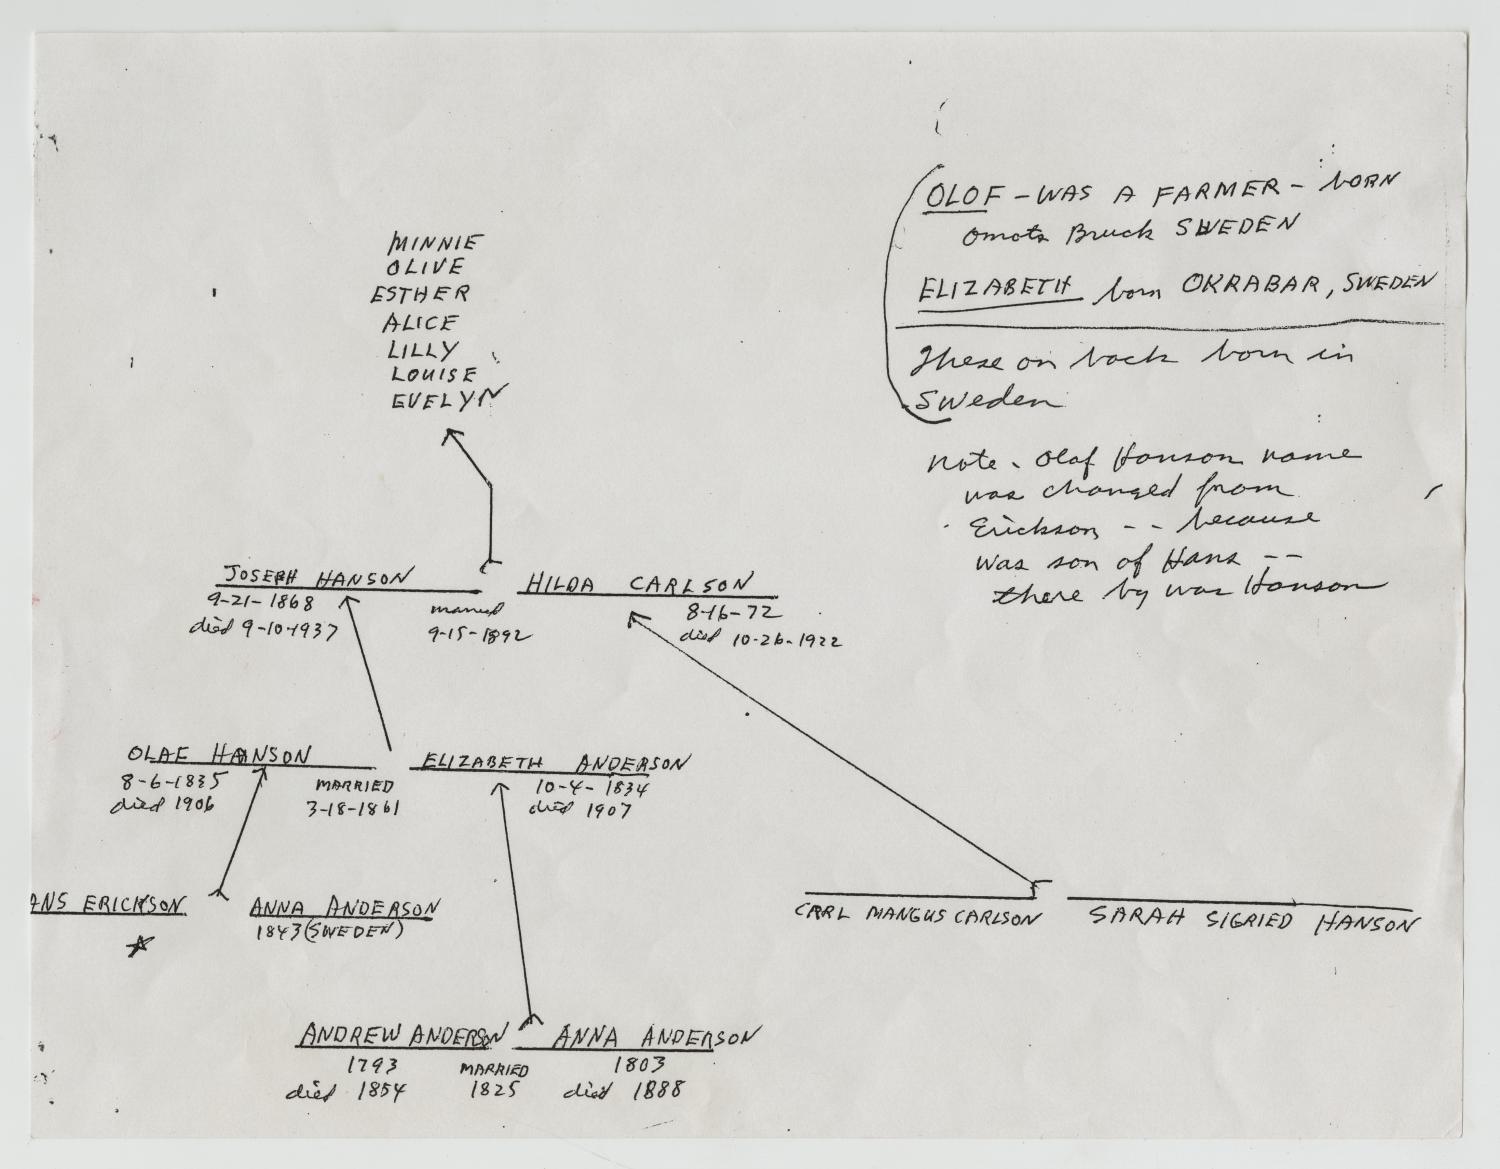 OLOF - WAS A FARMER - born
Omots Bruck SWEDEN
ELIZABETH born OKRABAR, SWEDEN
These on back born in
Sweden
note - Olaf Hanson name
was changed from
Erickson -- because
was son of Hans --
there by was Hanson
MINNIE
OLIVE
ESTHER
ALICE
LILLY
LOUISE
EVELYN
JOSEPH HANSON HILDA CARLSON
9-21-1868 married 8-16-72
died 9-10-1937 9-15-1892 died 10-26-1922
OLAF HANSON ELIZABETH ANDERSON
8-6-1835 MARRIED 10-4-1834
died 1906 3-18-1861 died 1907
ANS ERICKSON ANNA ANDERSON
1843 (SWEDEN)
CARL MANGUS CARLSON SARAH SIGRIED HANSON
ANDREW ANDERSON ANNA ANDERSON
1793 MARRIED 1803
died 1854 1825 died 1888